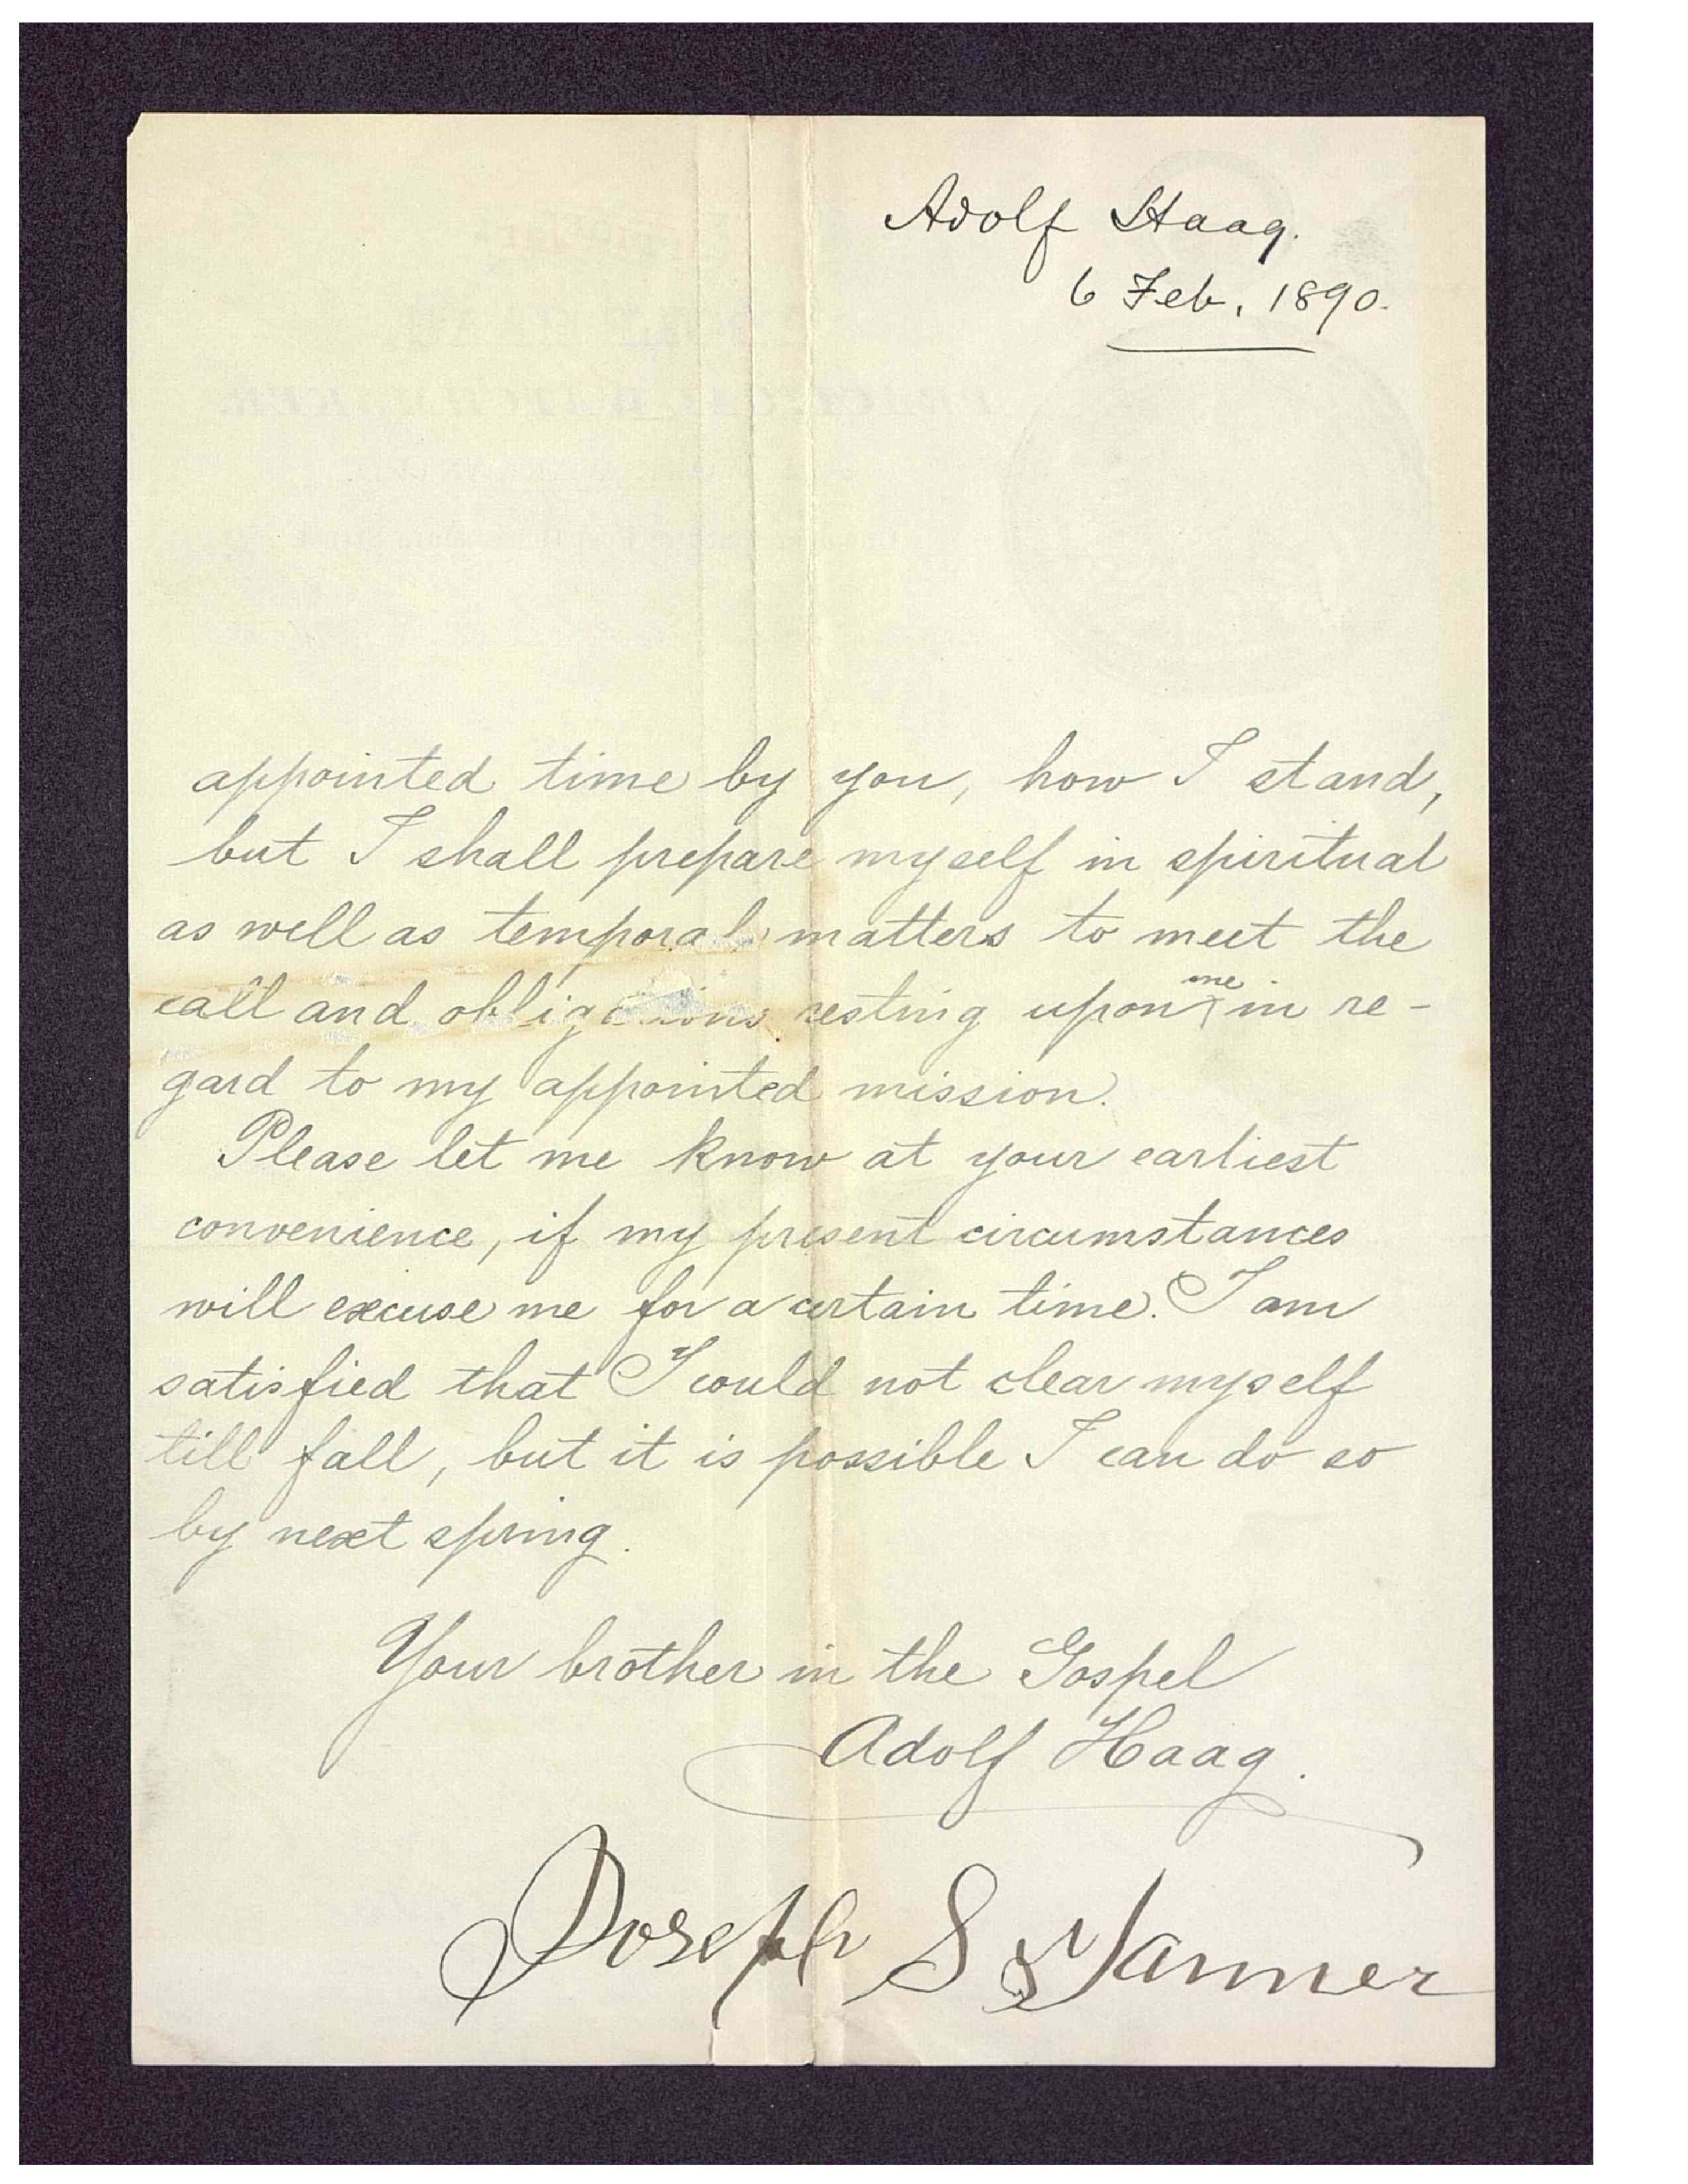 Adolf Haag.
6 Feb. 1890.
appointed time by you, how I stand,
but I shall prepare myself in spiritual
as well as temporal matters to meet the
call and obligations resting upon me in re-
gard to my appointed mission.
Please let me know at your earliest
convenience, if my present circumstances
will excuse me for a certain time. I am
satisfied that I could not clear myself
till fall, but it is possible I can do so
by next spring.
Your brother in the Gospel
Adolf Haag.
Joseph S Tanner